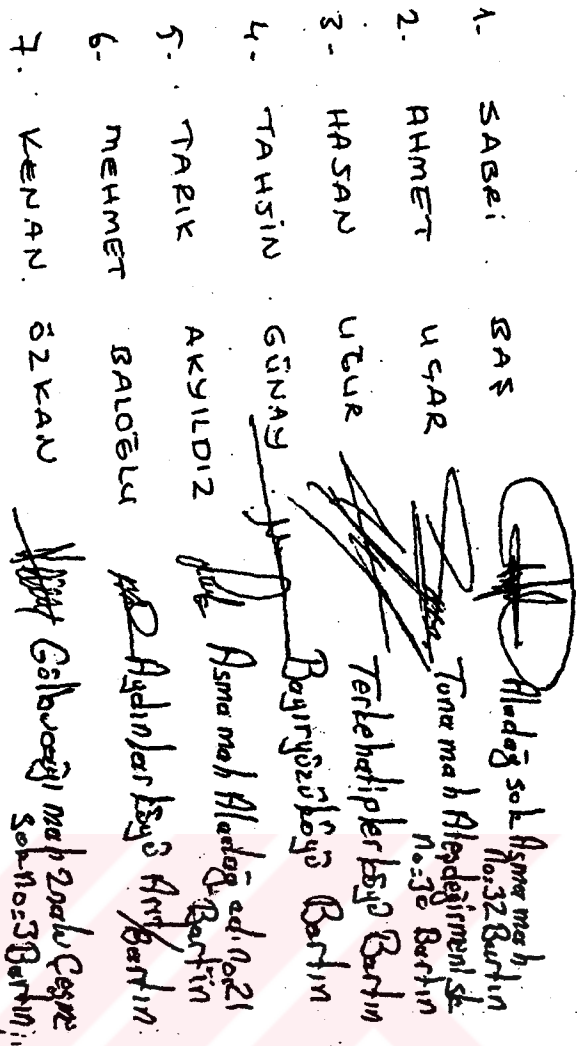 1- SABRİ BAŞ Aladağ sok Asma mah.
no:32 Bartın
2. AHMET UÇAR Tuna mah Ateşdeğirmeni sk
no=30 Bartın
3- HASAN UĞUR Terkehatipler köyü Bartın
4- TAHSİN GÜNAY Bayıryüzü köyü Bartın
5. TARIK AKYILDIZ Asma mah Aladağ cad no21
Bartın
6- MEHMET BALOĞLU Aydınlar köyü Bartın
7. KENAN ÖZKAN Gölbucağı mah 2nolu Çeşme
sok no=3 Bartın